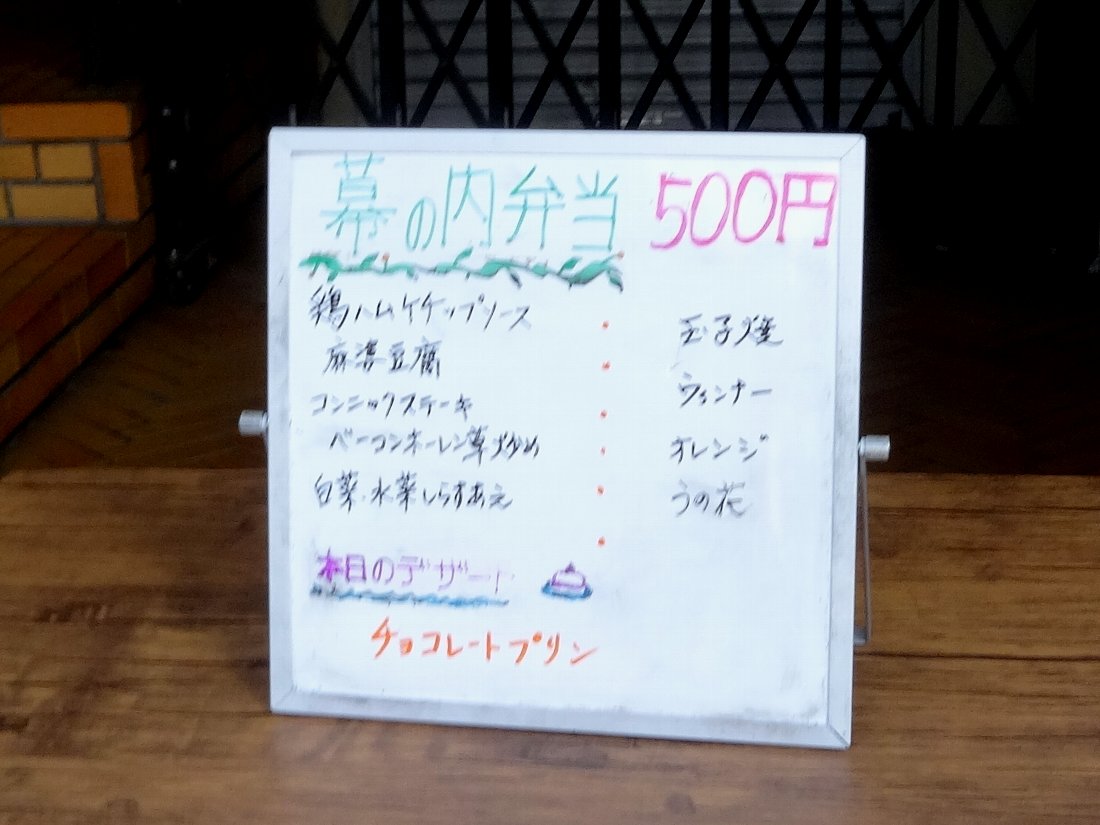 幕の内弁当 500円
鶏ハムケチャップソース
麻婆豆腐
コンニャクステーキ
ベーコンホーレン草炒め
白菜・水菜しらすあえ
玉子焼
ウィンナー
オレンジ
うの花
本日のデザート
チョコレートプリン